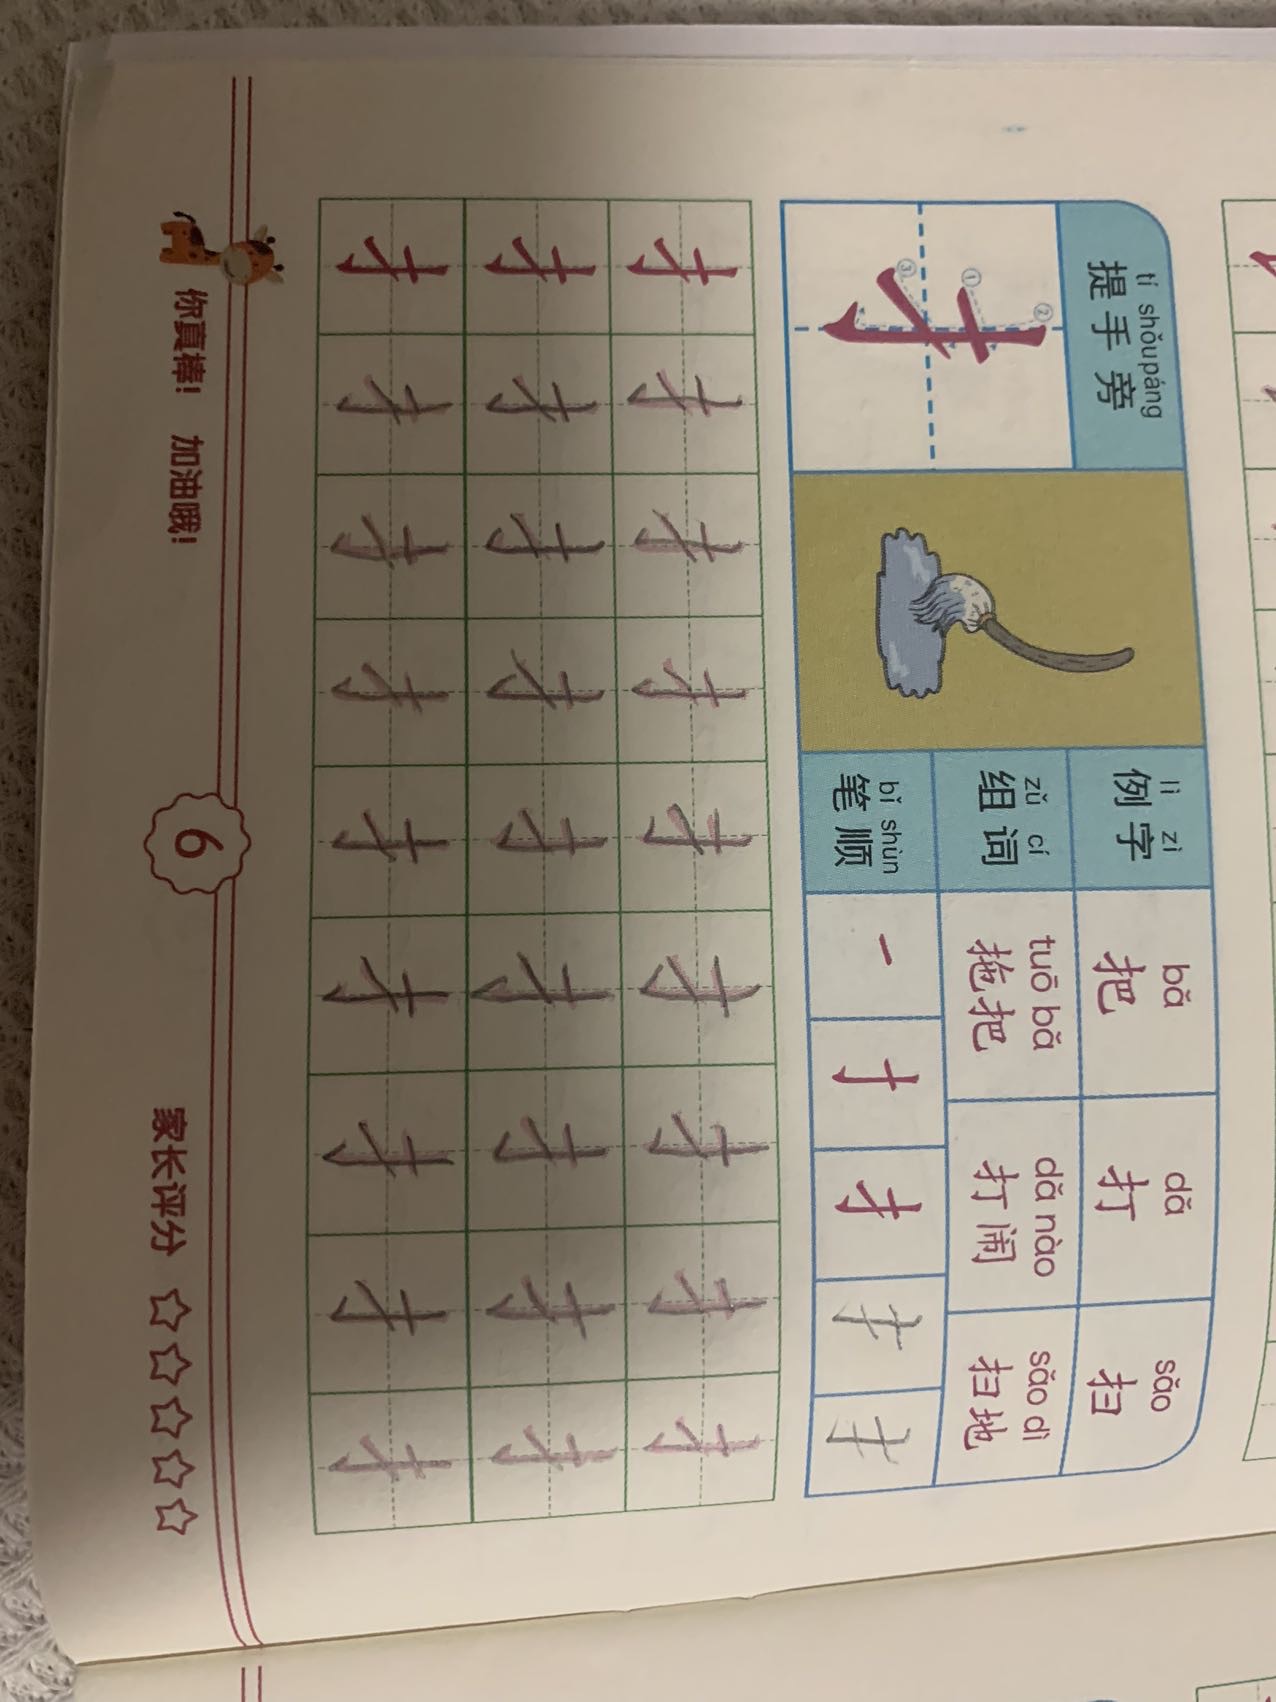 tí shǒu páng
提手旁
① ② ③
lì zì
例字
bǎ dǎ sǎo
把 打 扫
zǔ cí
组词
tuō bǎ dǎ nào sǎo dì
拖把 打闹 扫地
bǐ shùn
笔顺
一 扌 扌 扌
扌 扌 扌 扌 扌 扌 扌 扌 扌
扌 扌 扌 扌 扌 扌 扌 扌 扌
扌 扌 扌 扌 扌 扌 扌 扌 扌
你真棒! 加油哦!
6
家长评分